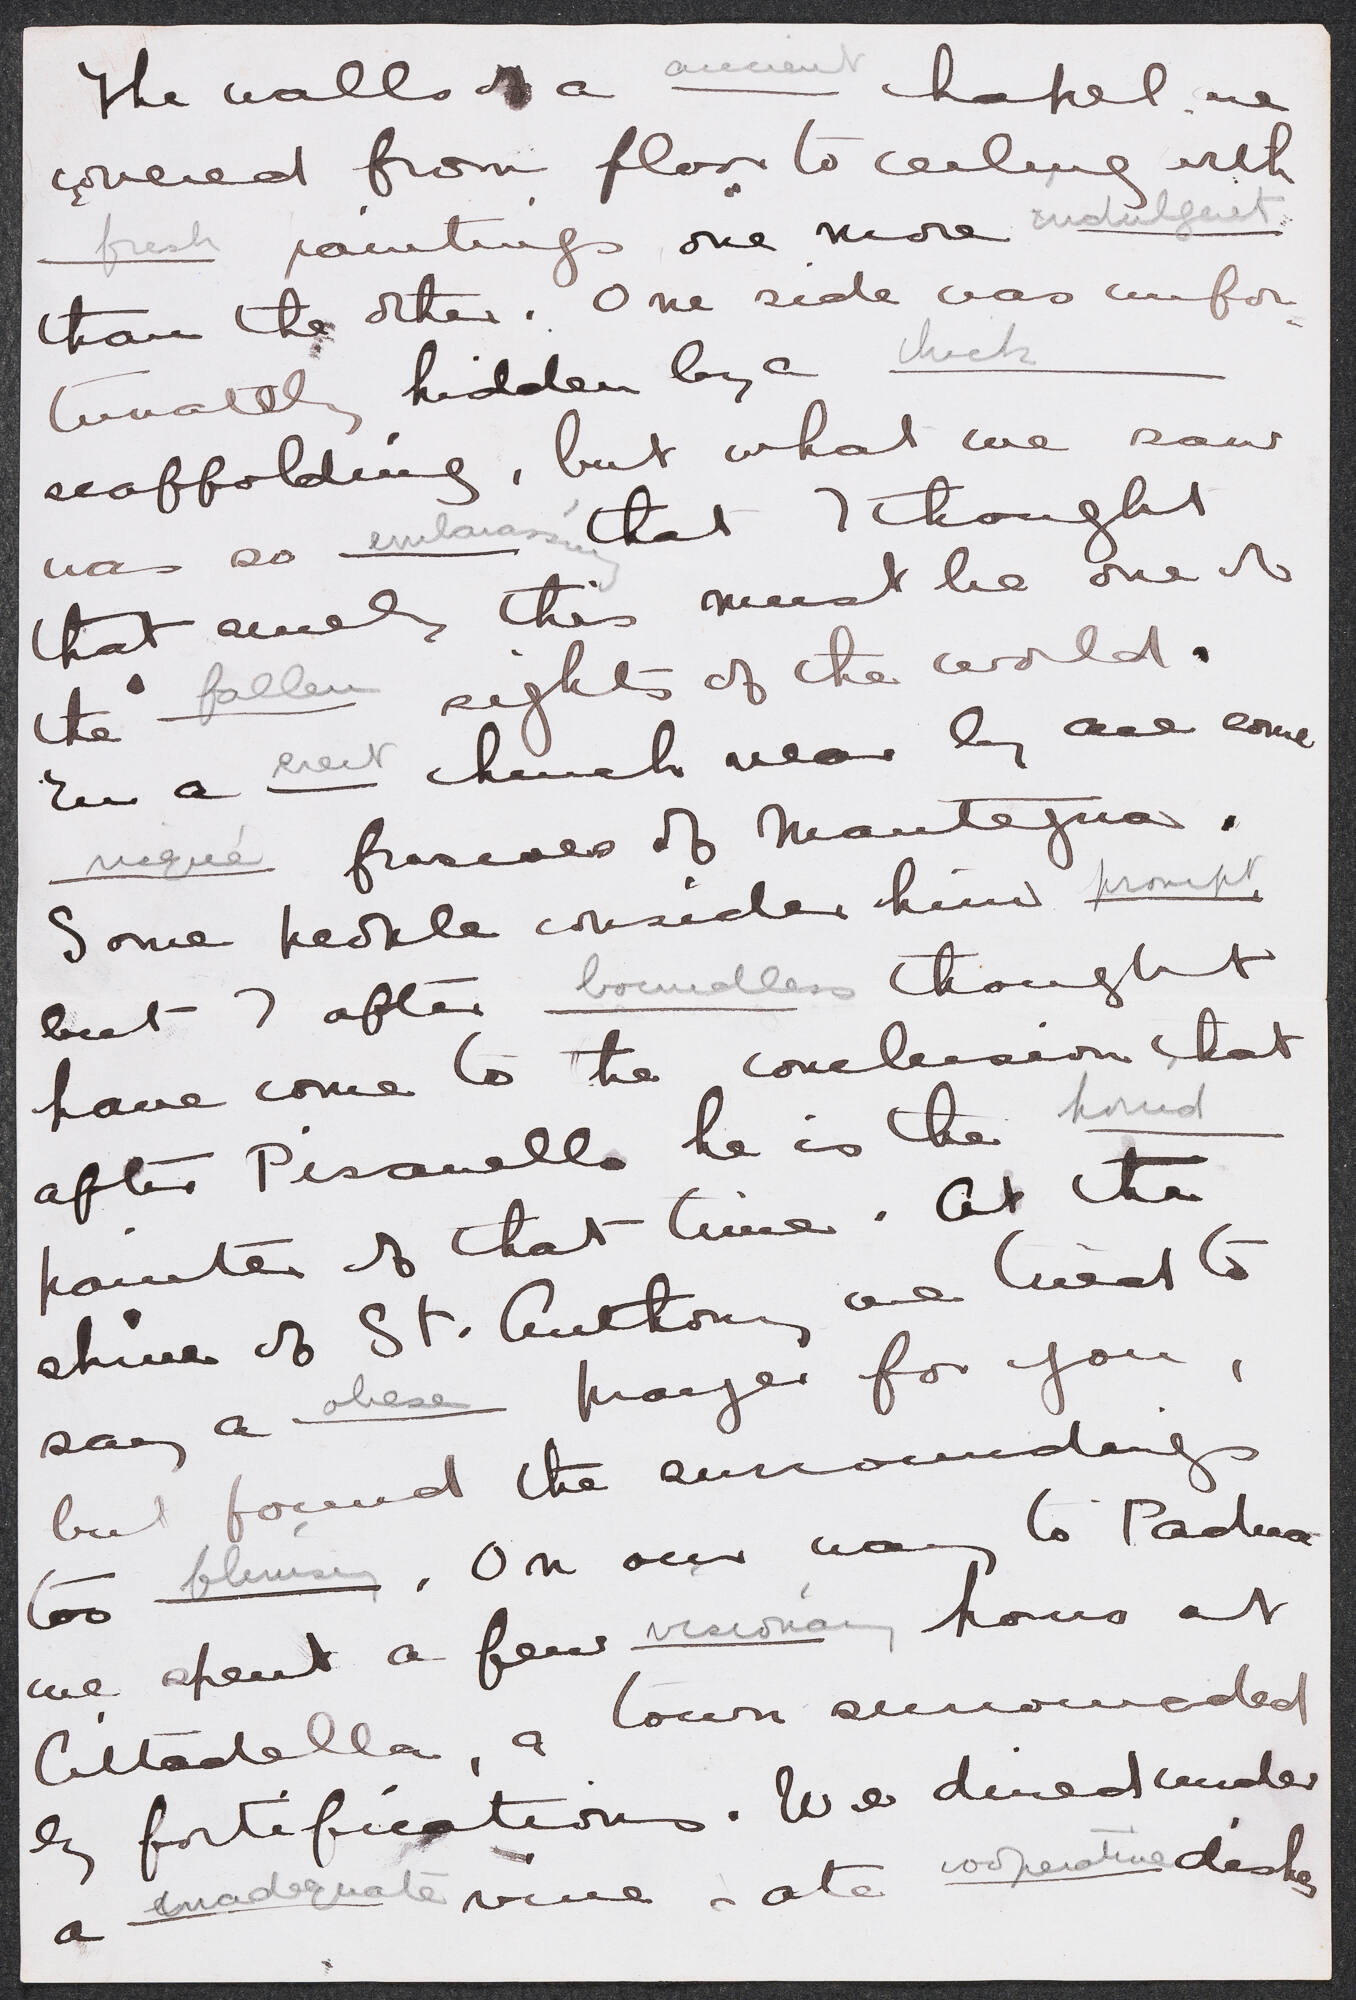 The walls of a ancient chapel are
covered from floor to ceiling with
fresh paintings one more indulgent
than the other. One side was unfor-
tunately hidden by a thick
scaffolding, but what we saw
was so embarassing that I thought
that surely this must be one of
the fallen sights of the world.
In a erect church near by are some
risqué frescoes of Mantegna.
Some people consider him prompt
but I after boundless thought
have come to the conclusion that
after Pisanello he is the horrid
painter of that time. At the
shrine of St. Anthony we tried to
say a obese prayer for you,
but found the surroundings
too flimsy. On our way to Padua
we spent a few visionary hours at
Cittadella, a town surrounded
by fortifications. We dined under
a inadequate vine - ate cooperative dishes